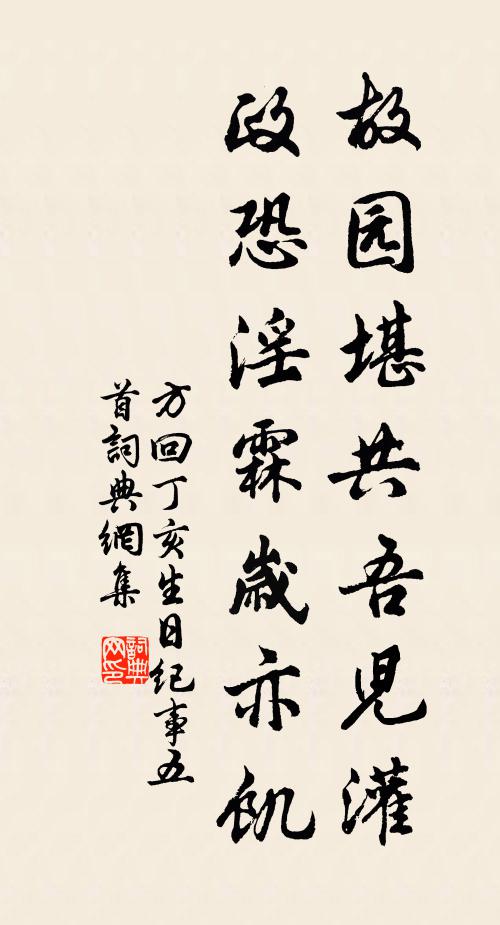 故园堪共吾児灌
政恐淫霖歲亦飢
方回丁亥生日纪事五
首詞典網集
詞典网印